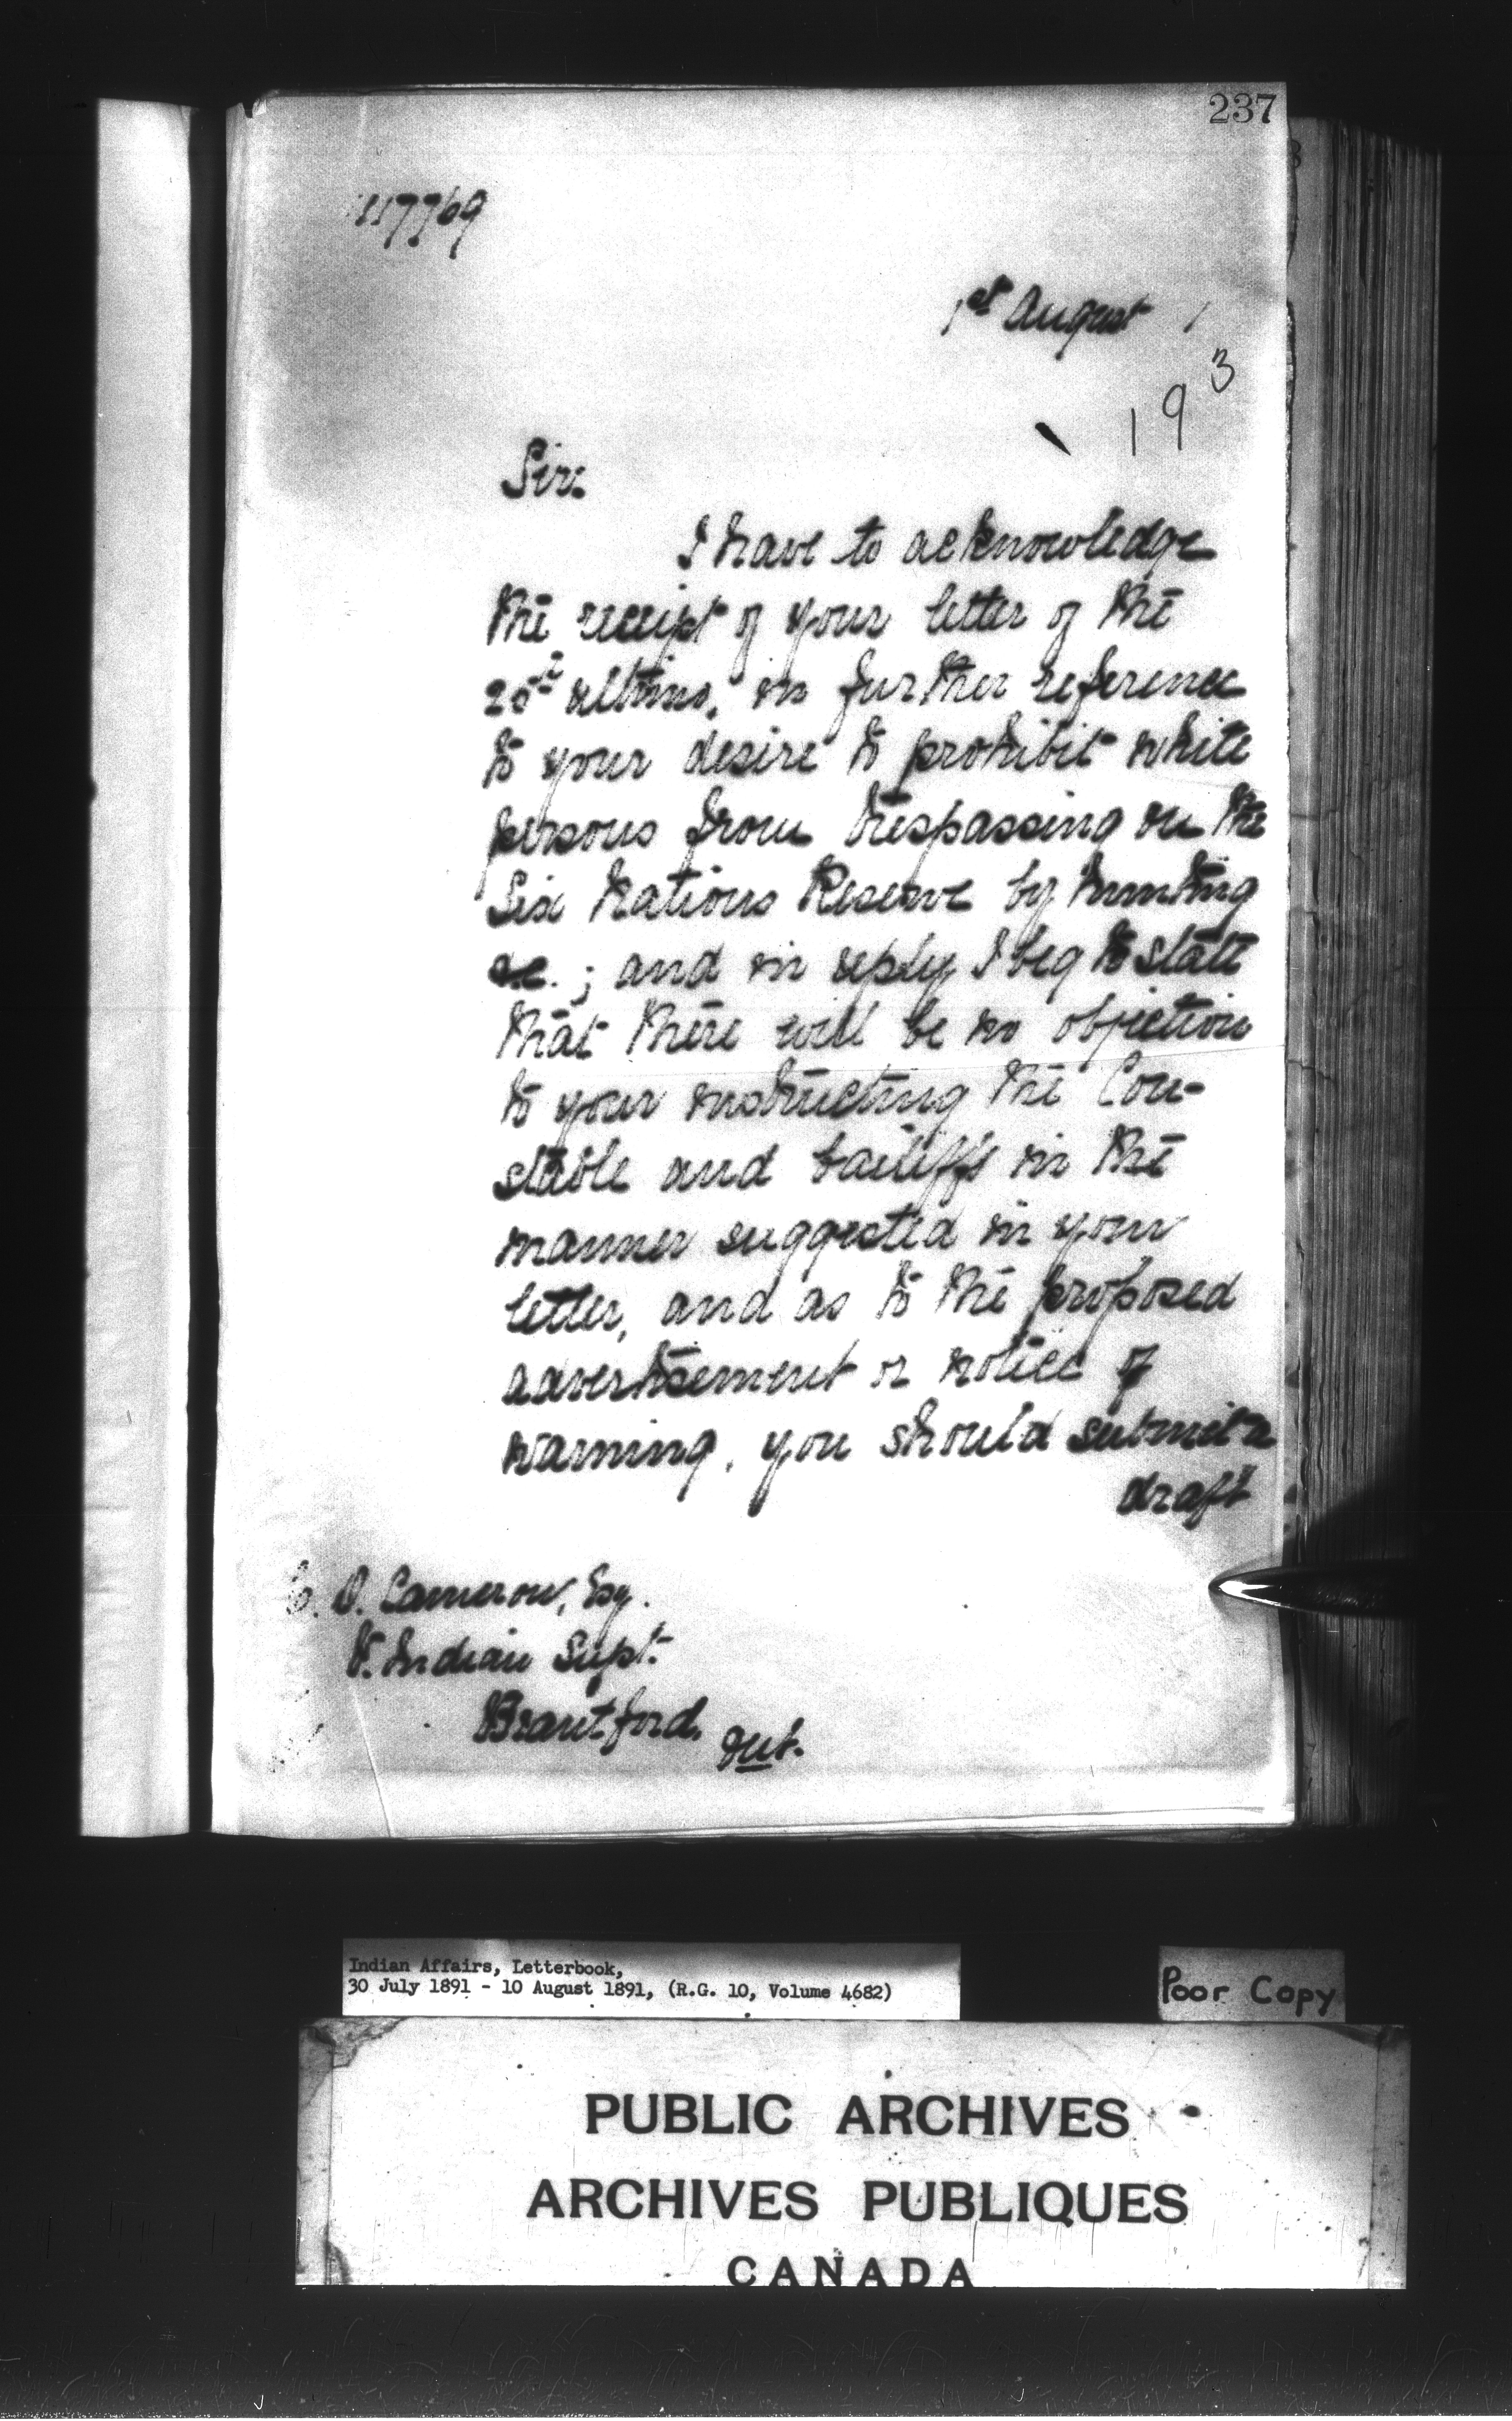 237
117769
1st August 1
193
Sir:
I have to acknowledge
the receipt of your letter of the
ultimo, in further reference
to your desire to prohibit white
persons from trespassing on the
Six Nations Reserve by hunting
&c.; and in reply I beg to state
that there will be no objection
to your instructing the Con-
stable and bailiffs in the
manner suggested in your
letter, and as to the proposed
advertisement or notice of
warning, you should submit a
draft
E. D. Cameron, Esq.
V. Indian Supt.
Brantford, Ont.
Indian Affairs, Letterbook,
30 July 1891 - 10 August 1891, (R.G. 10, Volume 4682)
Poor Copy
PUBLIC ARCHIVES
ARCHIVES PUBLIQUES
CANADA